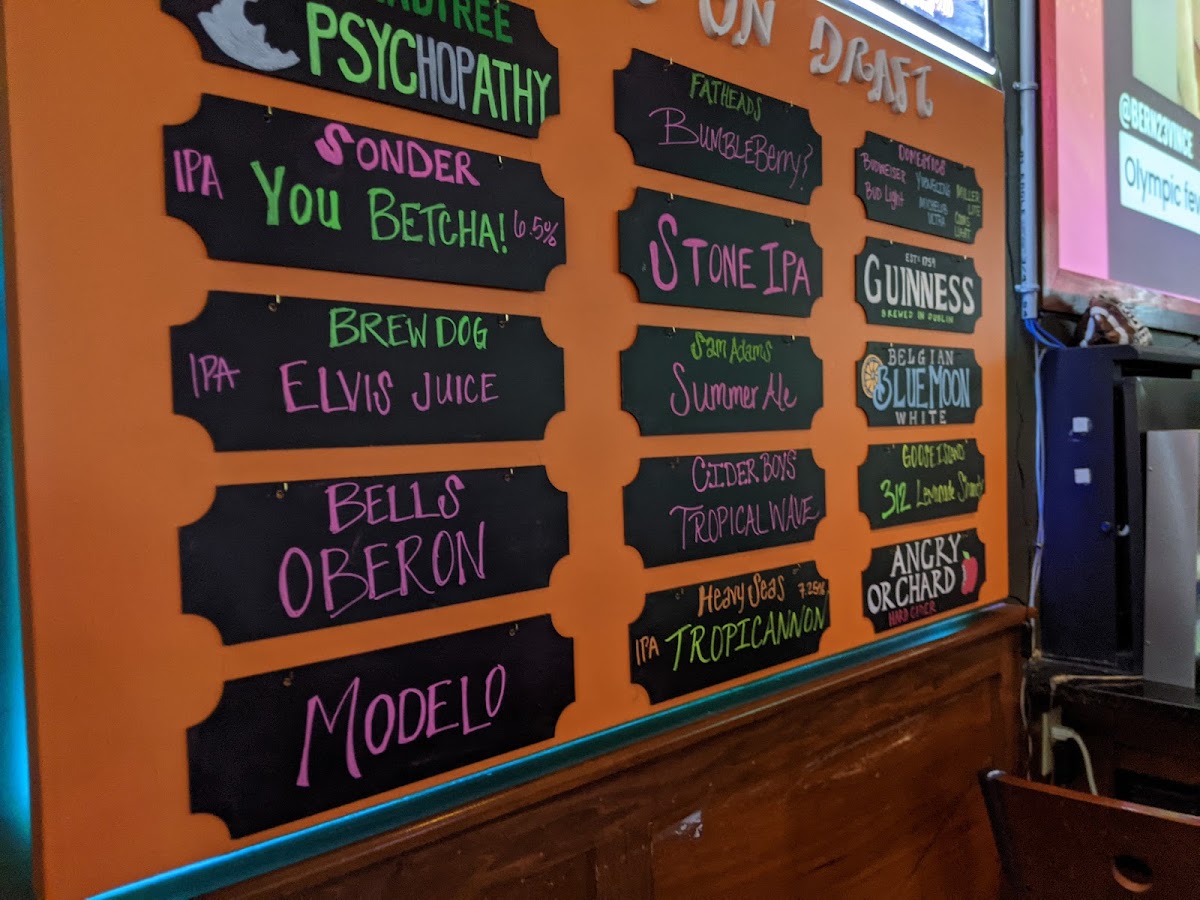 PSYCHOPATHY
IPA
SONDER
YOU BETCHA!
6.5%
BREW DOG
IPA
ELVIS JUICE
BELLS
OBERON
MODELO
ON DRAFT
FATHEADS
BUMBLEBERRY?
STONE IPA
Sam Adams
Summer Ale
CIDER BOYS
TROPICAL WAVE
HEAVY SEAS 7.25%
IPA
TROPICANNON
DOMESTICS
BUDWEISER
Bud Light
YUENGLING
MICHELOB
ULTRA
MILLER
LITE
COORS
LIGHT
ESTD 1759
GUINNESS
BREWED IN DUBLIN
BELGIAN
BLUE MOON
WHITE
GOOSE ISLAND
312 Lemonade Shandy
ANGRY
ORCHARD
HARD CIDER
@BERK23VINCE
Olympic fev